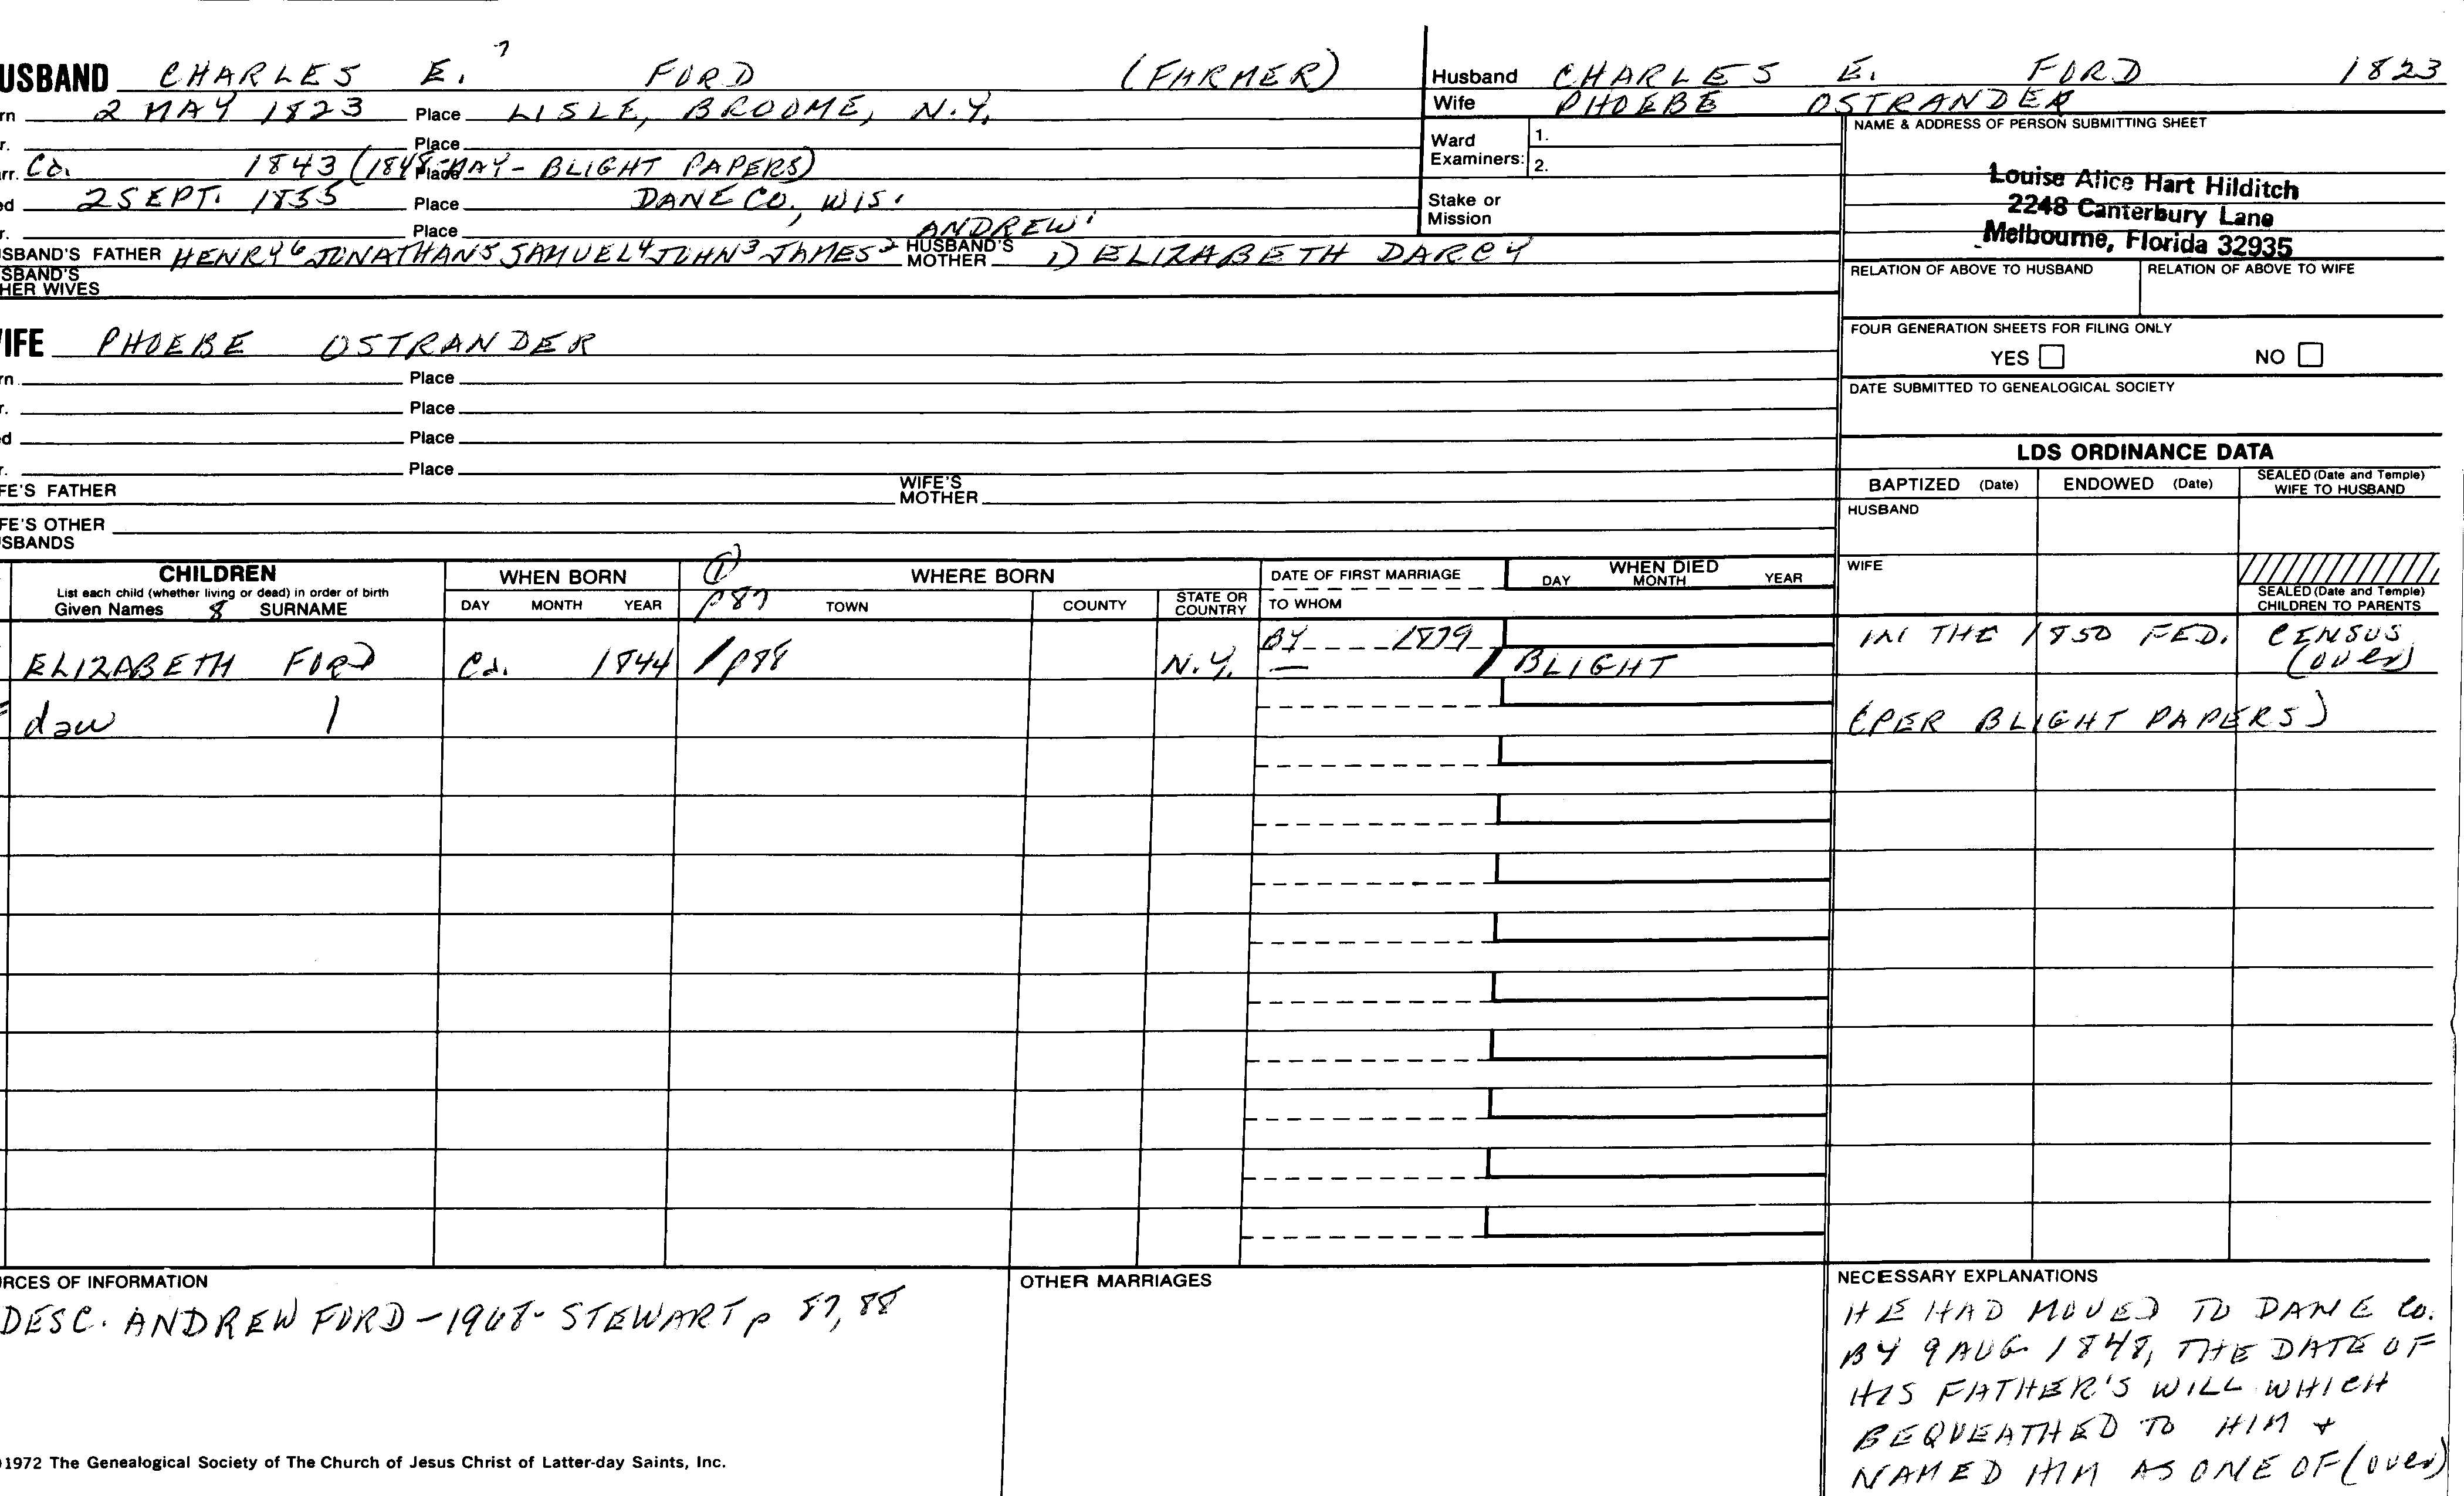 USBAND CHARLES E. 7 FORD (FARMER)
rn 2 MAY 1823 Place LISLE, BROOME, N.Y.
r. Place
rr. Ca. 1843 (1848-MAY- BLIGHT PAPERS) Place
ed 2 SEPT. 1855 Place DANE CO., WIS.
r. Place ANDREW1
SBAND'S FATHER HENRY6 JONATHAN5 SAMUEL4 JOHN3 JAMES2 HUSBAND'S MOTHER 1) ELIZABETH DARCY
SBAND'S
HER WIVES
Husband CHARLES E. FORD 1823
Wife PHOEBE OSTRANDER
Ward
Examiners: 1.
2.
Stake or
Mission
NAME & ADDRESS OF PERSON SUBMITTING SHEET
Louise Alice Hart Hilditch
2248 Canterbury Lane
Melbourne, Florida 32935
RELATION OF ABOVE TO HUSBAND RELATION OF ABOVE TO WIFE
FOUR GENERATION SHEETS FOR FILING ONLY
YES NO
DATE SUBMITTED TO GENEALOGICAL SOCIETY
IFE PHOEBE OSTRANDER
rn Place
r. Place
d Place
r. Place
FE'S FATHER WIFE'S MOTHER
FE'S OTHER
SBANDS
LDS ORDINANCE DATA
BAPTIZED (Date) ENDOWED (Date) SEALED (Date and Temple) WIFE TO HUSBAND
HUSBAND
WIFE
SEALED (Date and Temple) CHILDREN TO PARENTS
CHILDREN WHEN BORN 1 WHERE BORN DATE OF FIRST MARRIAGE WHEN DIED
List each child (whether living or dead) in order of birth
Given Names 8 SURNAME DAY MONTH YEAR p87 TOWN COUNTY STATE OR COUNTRY TO WHOM DAY MONTH YEAR
BY 1879 IN THE 1850 FED. CENSUS
ELIZABETH FORD Ca. 1844 /p88 N.Y. — / BLIGHT (over)
daw 1 (PER BLIGHT PAPERS)
RCES OF INFORMATION
DESC. ANDREW FORD -1968- STEWART p 87, 88
OTHER MARRIAGES
NECESSARY EXPLANATIONS
HE HAD MOVED TO DANE Co.
BY 9 AUG. 1848, THE DATE OF
HIS FATHER'S WILL WHICH
BEQUEATHED TO HIM +
NAMED HIM AS ONE OF (over)
1972 The Genealogical Society of The Church of Jesus Christ of Latter-day Saints, Inc.